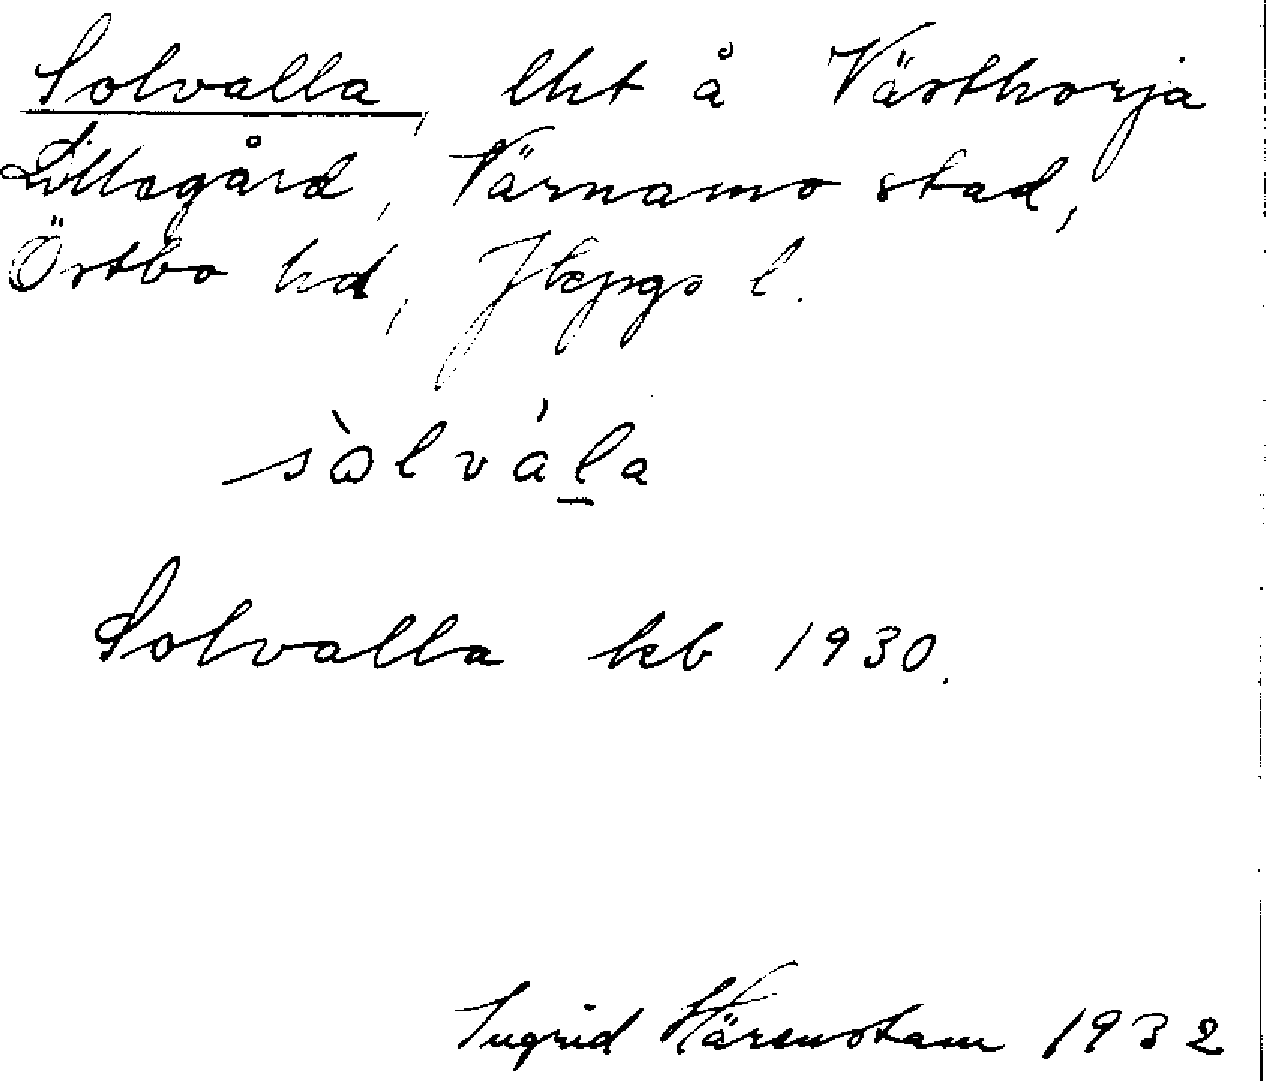 Solvalla, lht å Västhorja
Lillegård, Värnamo stad,
Östbo hd, Jkpgs l.
sòlvála
Solvalla kb 1930.
Ingrid Härenstam 1932